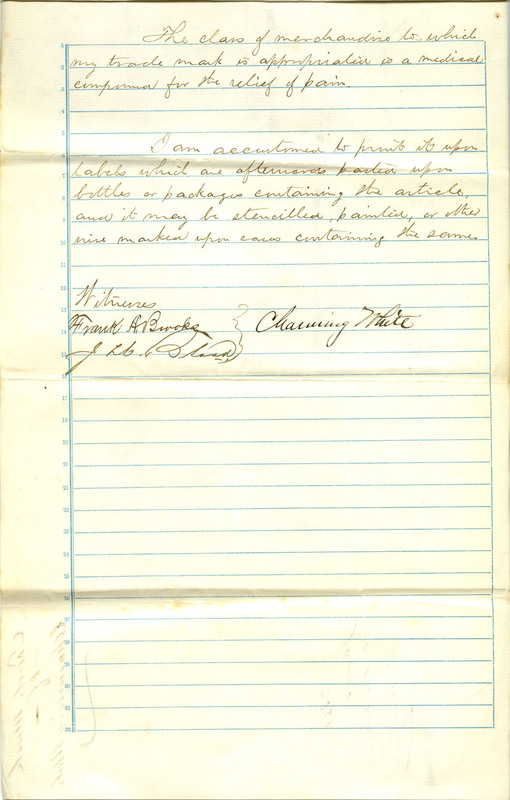 The class of merchandise to which
my trade mark is appropriated is a medical
compound for the relief of pain.
I am accustomed to print it upon
labels which are afterwards pasted upon
bottles or packages containing the article,
and it may be stencilled, painted, or other
wise marked upon cases containing the same.
Witnesses
Frank A Brooks } Channing White
J